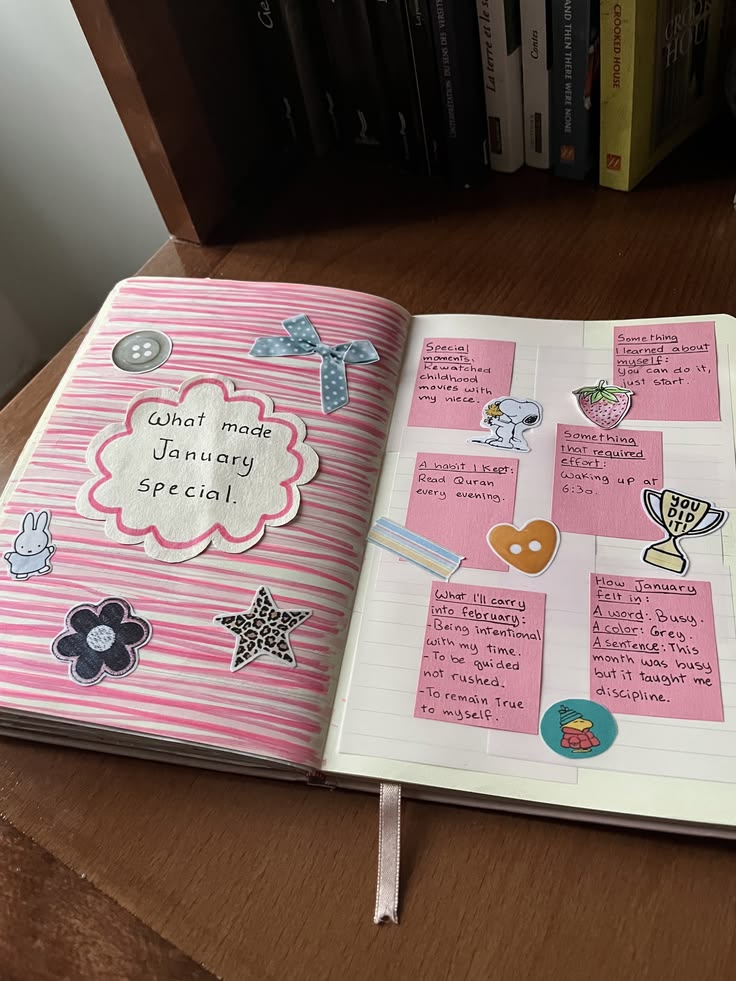 La terre et le
Contes
AND THEN THERE WERE
CROOKED HOUSE
CROOKED
HOUSE
What made
January
special.
Special
moments:
Rewatched
childhood
movies with
my niece.
Something
I learned about
myself:
You can do it,
just start.
A habit I kept:
Read Quran
every evening.
Something
that required
effort:
Waking up at
6:30.
YOU
DID
IT!
What I'll carry
into february:
- Being intentional
with my time.
- To be guided
not rushed.
- To remain True
to myself.
How January
felt in:
A word: Busy.
A color: Grey.
A sentence: This
month was busy
but it taught me
discipline.